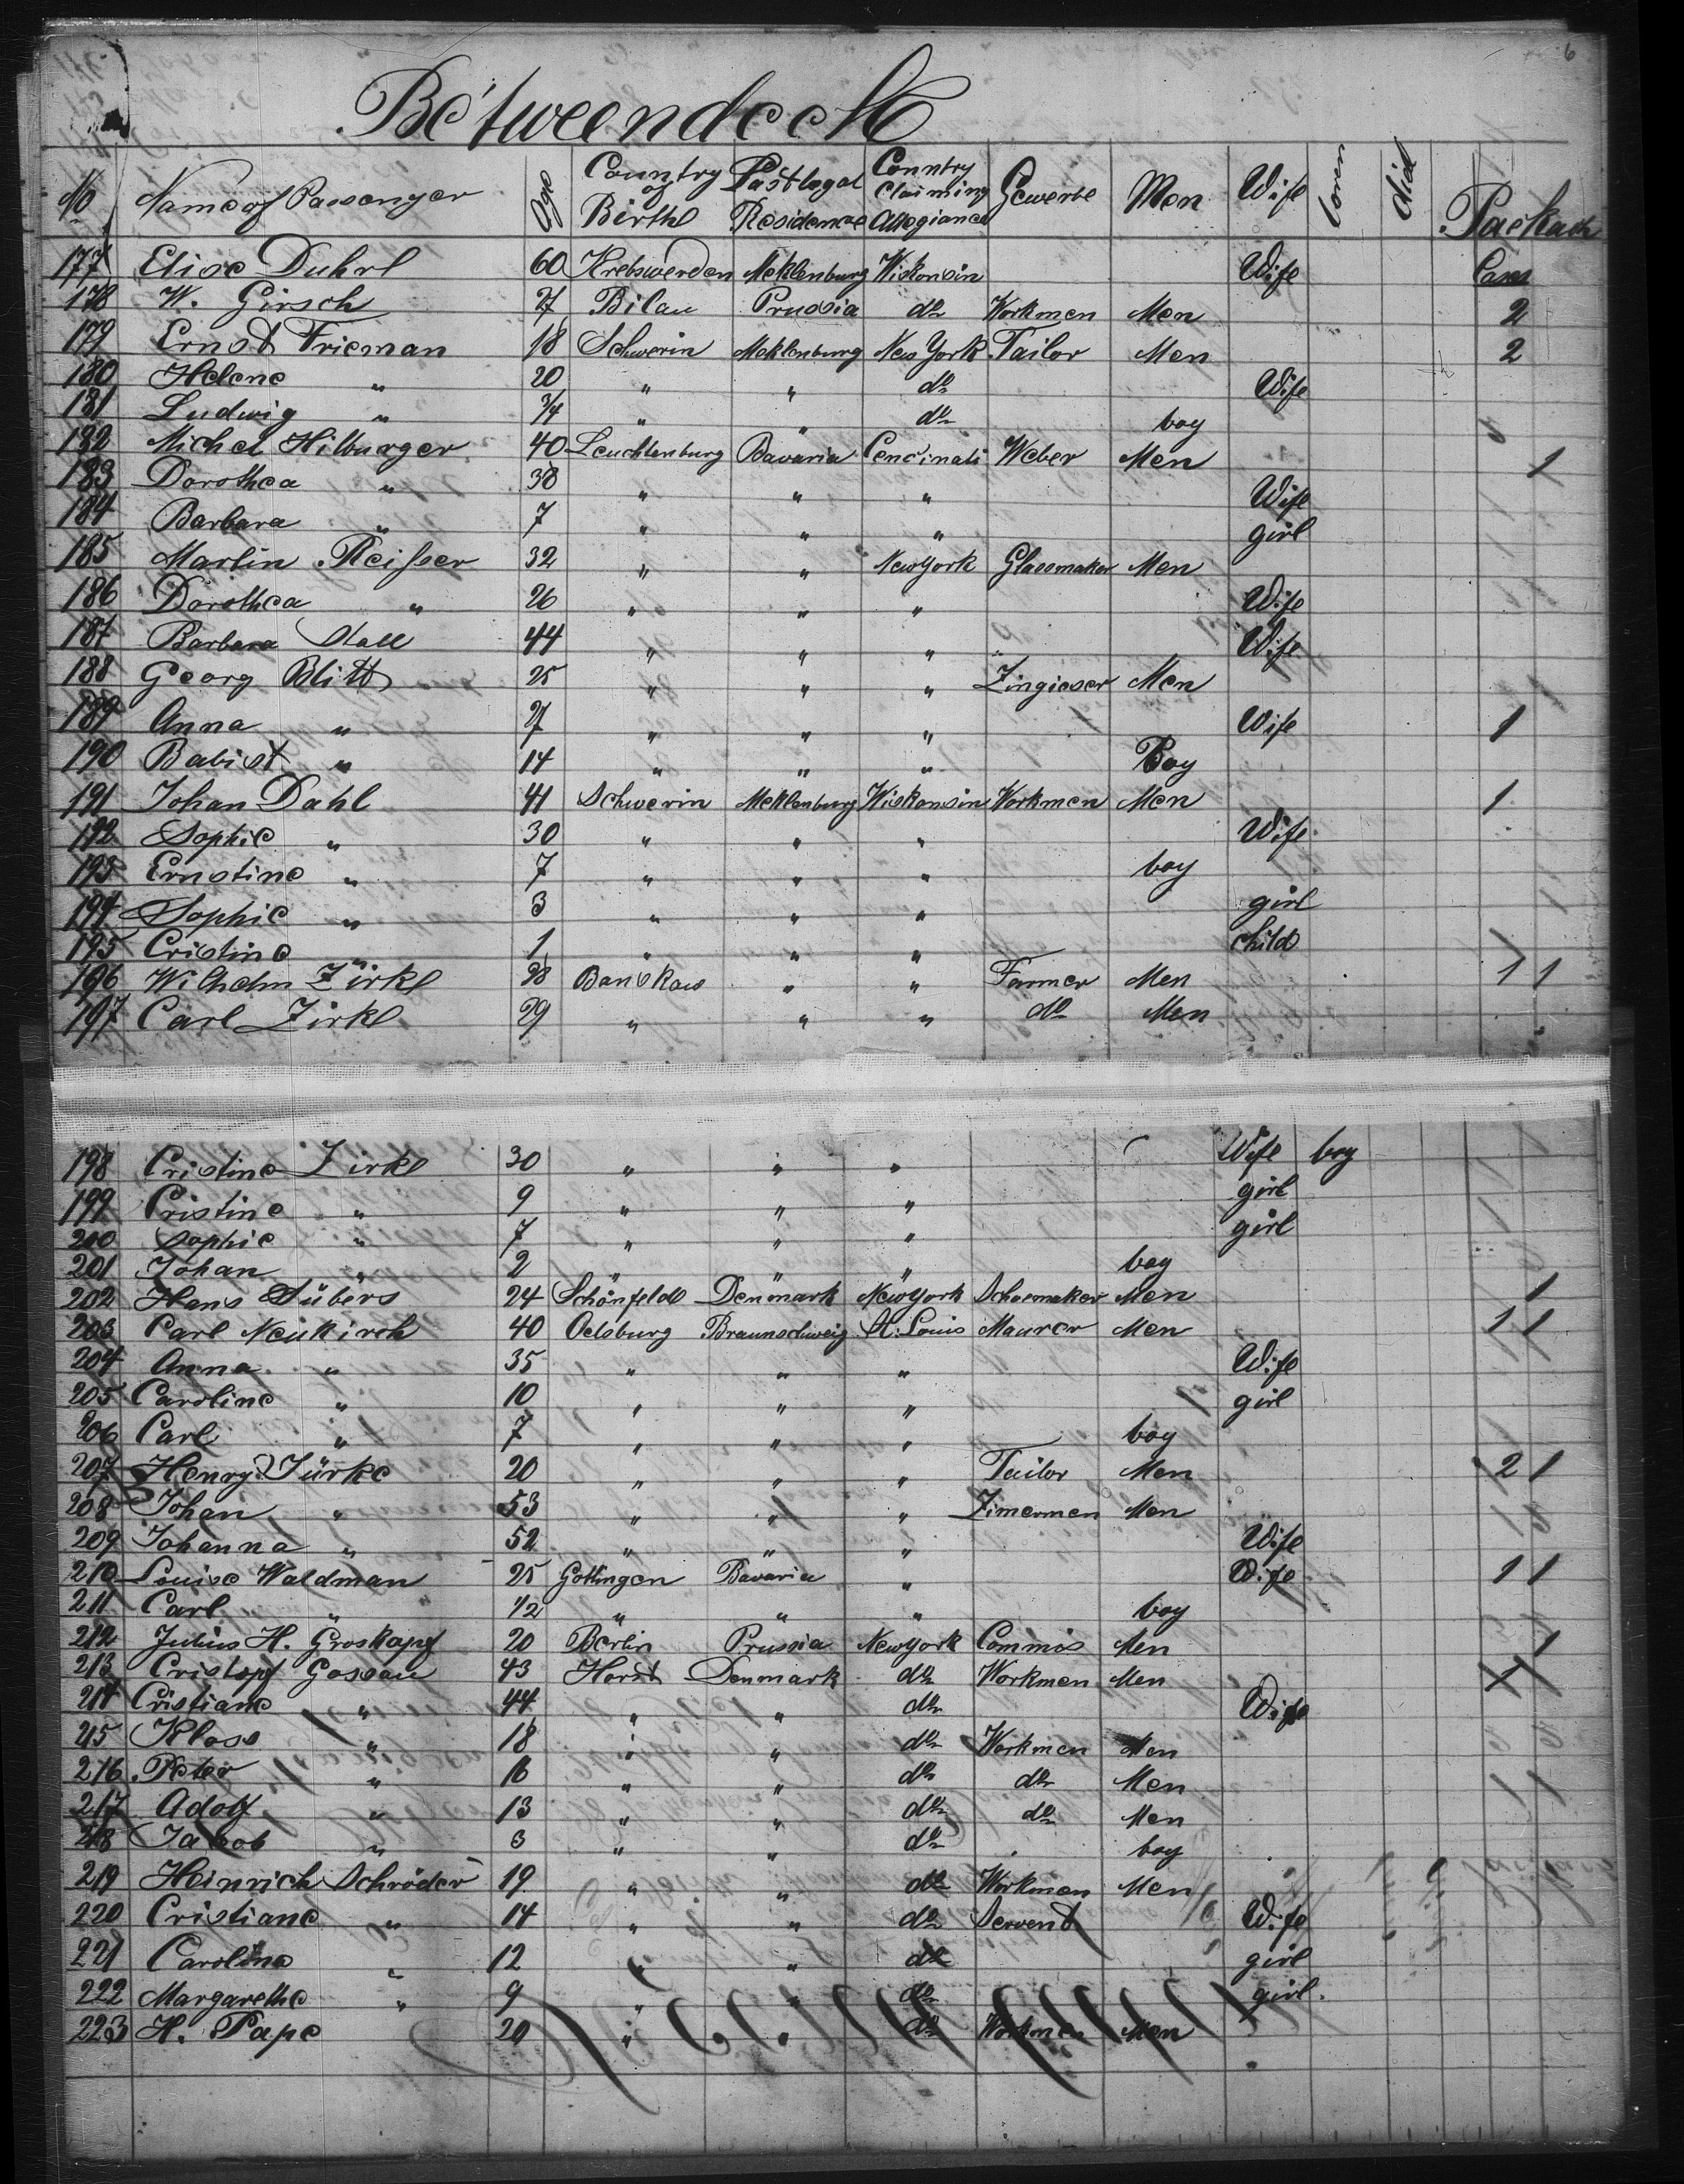 6
Betweendeck
No Name of Passenger Age Country of Birth Last legal Residence Country Claiming Allegiance Gewerbe Men Wife boren died Packach
177 Elise Duhrl 60 Krebswerden Meklenburg Wiskonsin Wife Cases
178 W. Girsch 27 Bilau Prussia do Workmen Men 2
179 Ernst Frieman 18 Schwerin Meklenburg New York Tailor Men 2
180 Helene " 20 " " do Wife
181 Ludwig " 3/4 " " do boy
182 Michel Hilburger 40 Leuchtenburg Bavaria Cencinati Weber Men 1
183 Dorothea " 38 " " " Wife
184 Barbara " 7 " " " girl
185 Martin Reisser 32 " " New York Glasmaker Men
186 Dorothea " 26 " " " Wife
187 Barbara Stall 44 " " " Wife
188 Georg Blitt 25 " " " Zingieser Men
189 Anna " 27 " " " Wife 1
190 Babist " 14 " " " Boy
191 Johan Dahl 41 Schwerin Meklenburg Wiskonsin Workmen Men 1
192 Sophie " 30 " " " Wife
193 Ernstine " 7 " " " boy
194 Sophie " 3 " " " girl
195 Cristine " 1 " " " child
196 Wilhelm Zirkl 28 Banskow " " Farmer Men 1 1
197 Carl Zirkl 29 " " " do Men
198 Cristine Zirkl 30 " " " Wife boy
199 Cristine " 9 " " " girl
200 Sophie " 7 " " " girl
201 Johan " 2 " " " boy
202 Hans Sübers 24 Schönfeld Denmark New York Schoemaker Men 1
203 Carl Neukirch 40 Oelsburg Braunschweig St. Louis Maurer Men 1 1
204 Anna " 35 " " " Wife
205 Caroline " 10 " " " girl
206 Carl " 7 " " " boy
207 Henry Türke 20 " " " Tailor Men 2 1
208 Johan " 53 " " " Zimermen Men
209 Johanna " 52 " " " Wife
210 Louise Waldman 25 Gottingen Bavaria " Wife 1 1
211 Carl " 1/2 " " " boy
212 Julius H. Groskopf 20 Berlin Prussia New York Commis Men 1
213 Cristopf Gossau 43 Horst Denmark do Workmen Men 1
214 Cristiane " 44 " " do Wife
215 Klass " 18 " " do Workmen Men
216 Peter " 16 " " do do Men
217 Adolf " 13 " " do do Men
218 Jacob " 3 " " do boy
219 Heinrich Schröder 19 " " do Workmen Men 1
220 Cristiane " 14 " " do Servend Wife
221 Carolina " 12 " " do girl
222 Margarethe " 9 " " do girl.
223 H. Pape 20 " " do Workmen Men